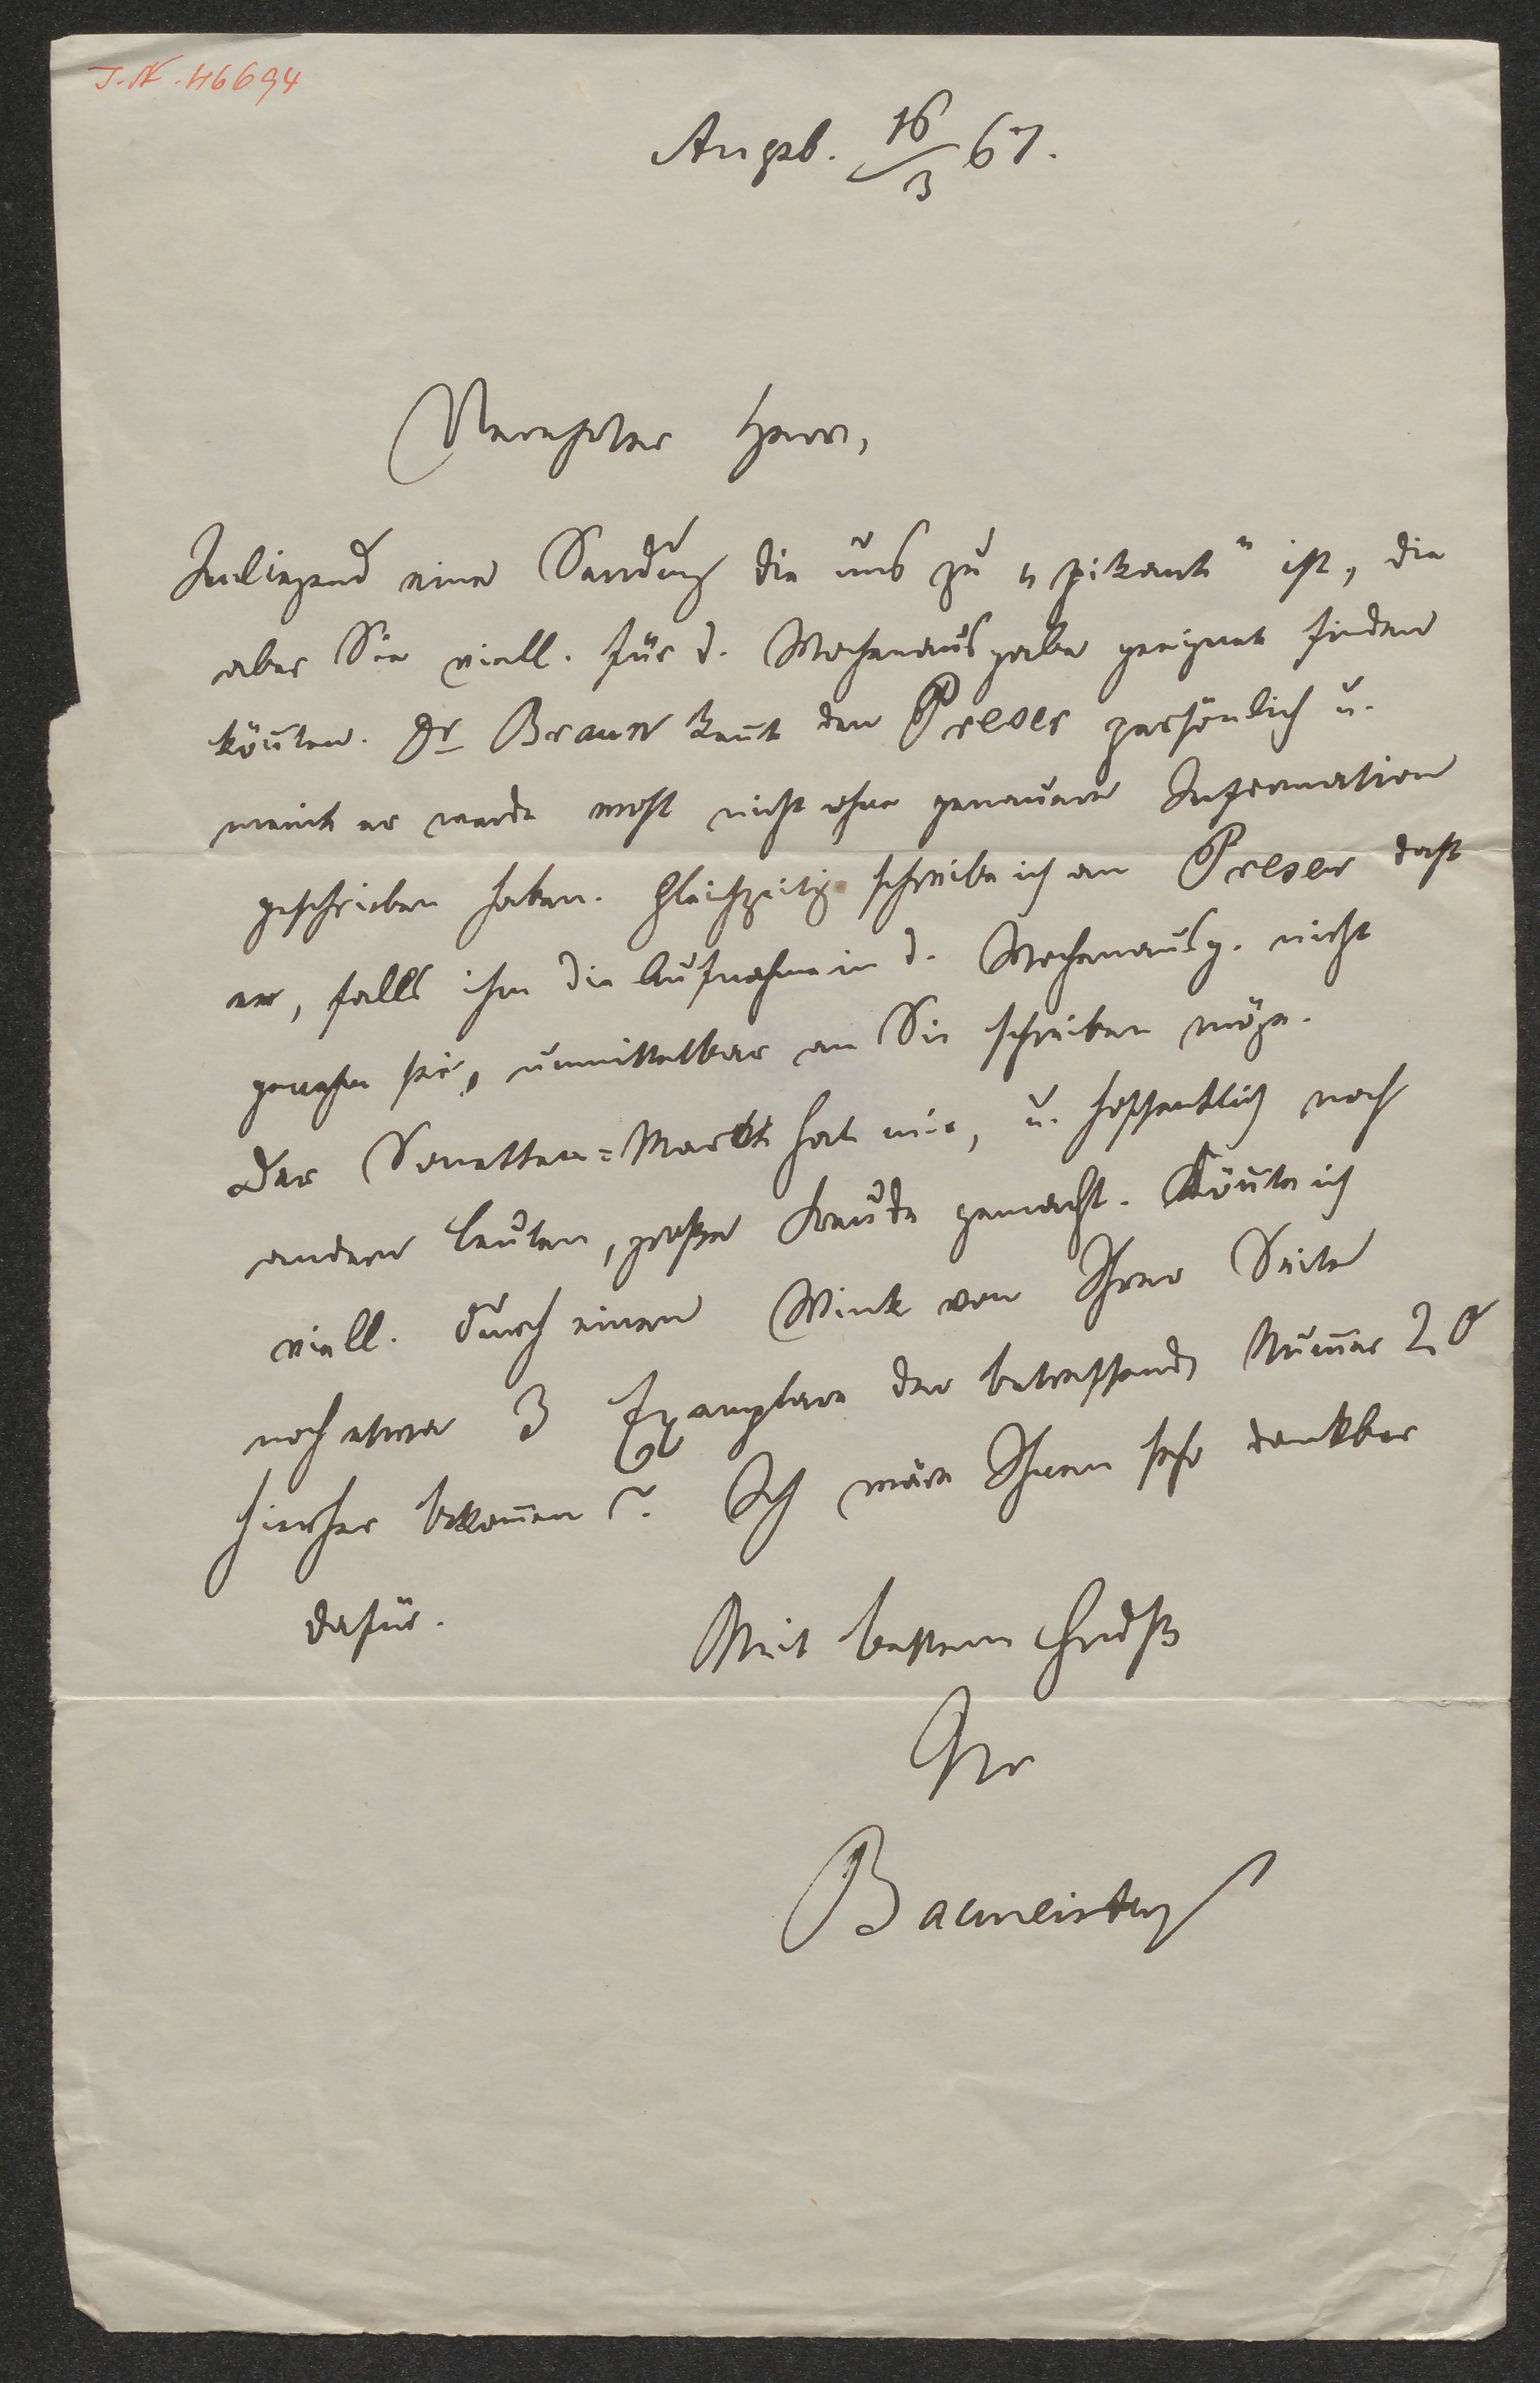 J.N. 46694
Augsb. 16/3 67.
Verehrter Herr,
Inliegend eine Sendung die uns zu „pikant“ ist, die
aber Sie viell. für d. Wochenausgabe geeignet finden
köñten. Dr Braun keñt den persönlich u.
meint er werde wohl nicht ohne genauere Information
geschrieben haben. Gleichzeitig schreibe ich an daß
er, falls ihm die Aufnahme in d. Wochenausg. nicht
genehm sei, unmittelbar an Sie schreiben möge.
Der Sonetten=Markt hat mir, u. hoffentlich noch
andern Leuten, große Freude gemacht. Köñte ich
viell. durch einen Wink von Ihrer Seite
noch etwa 3 Exemplare der betreffende Num̃er
hierher bekom̃en? Ich wäre Ihnen sehr dankbar
dafür.
Mit bestem Gruß
Ihr
Bacmeister